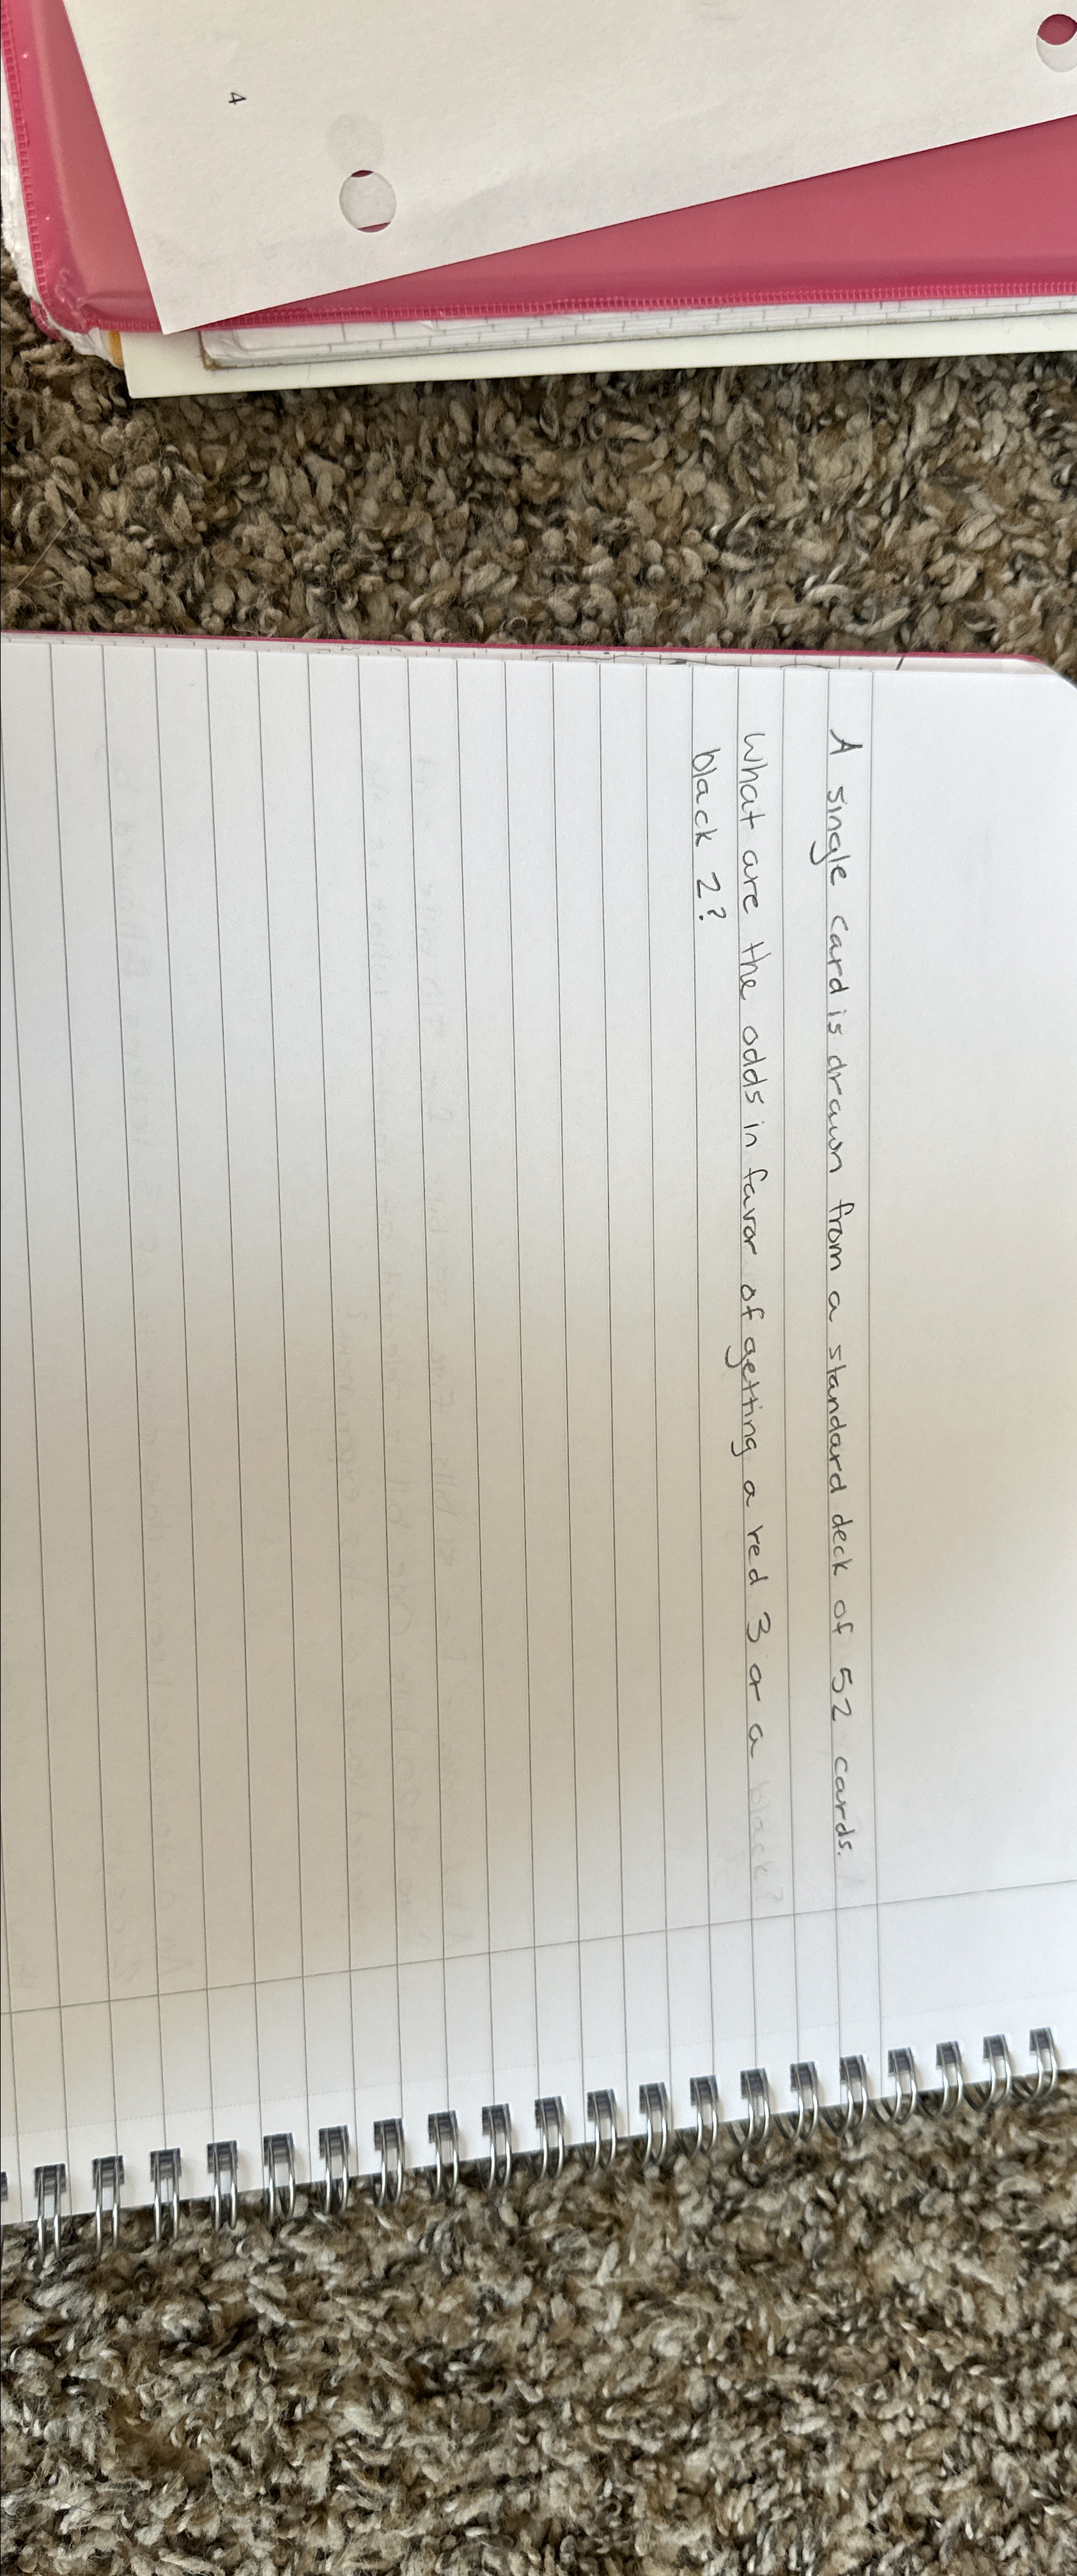 4
A single card is drawn from a standard deck of 52 cards.
What are the odds in favor of getting a red 3 or a black?
black 2?